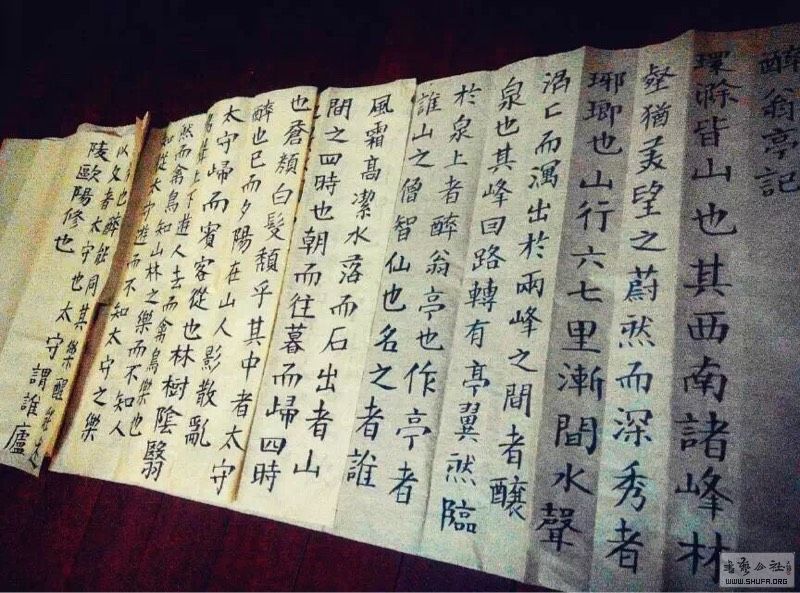 醉翁亭記
環滁皆山也其西南諸峰林
壑猶美望之蔚然而深秀者
琊瑯也山行六七里漸間水聲
而瀉出於兩峰之間者釀
泉也其峰回路轉有亭翼然臨
於泉上者醉翁亭也作亭者
誰山之僧智仙也名之者誰
風霜高潔水落而石出者山
間之四時也朝而往暮而歸四時
也蒼顏白髮頹乎其中者太守
醉也已而夕陽在山人影散亂
太守歸而賓客從也林樹陰翳
上下遊人去而禽鳥樂也
然而禽鳥知山林之樂而不知人
知從太守遊而不知太守之樂
也醉能同其樂醒能
以文者太守也太守謂誰廬
陵歐陽修也
書藝公社
WWW.SHUFA.ORG